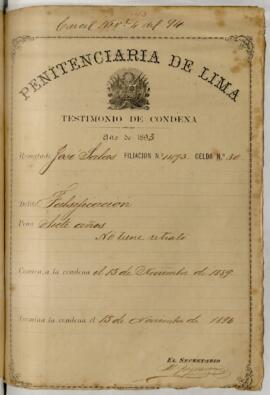 PENITENCIARIA DE LIMA
TESTIMONIO DE CONDENA
Año de 1893
José FILIACION N.º CELDA N.º 50
Delito Falsificación
Pena Siete años
No tiene retrato
Comienza la condena el 13 de Noviembre de 1889
Termina la condena el 13 de Noviembre de 1896
EL SECRETARIO